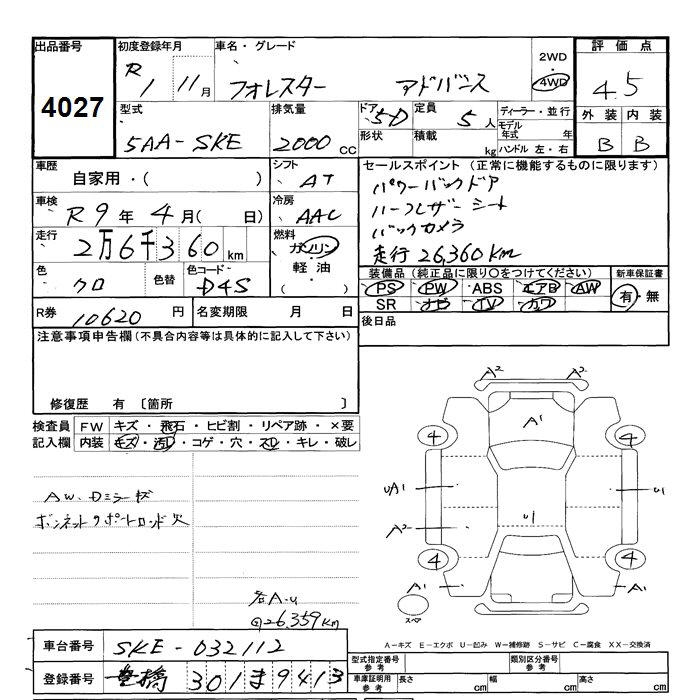 出品番号 初度登録年月 車名・グレード 2WD ・ 4WD 評価点
4027 R1 11月 フォレスター アドバンス 4.5
型式 排気量 ドア 定員 ディーラー・並行 外装 内装
5AA-SKE 2000cc 5D 5人 モデル年式 年 B B
形状 積載 kg ハンドル 左・右
車歴 シフト セールスポイント(正常に機能するものに限ります)
自家用・( ) AT パワーバックドア
車検 冷房 ハーフレザーシート
R9年4月( 日) AAC バックカメラ
走行 燃料 走行26,360km
2万6千360km ガソリン
軽油・( )
色 色替 色コード 装備品(純正品に限り○をつけてください) 新車保証書
クロ D4S PS PW ABS エアB AW 有・無
SR ナビ TV カワ
R券 10620円 名変期限 月 日 後日品
注意事項申告欄(不具合内容等は具体的に記入して下さい)
修復歴 有 〔箇所 〕
検査員 FW キズ・飛石・ヒビ割・リペア跡・×要
記入欄 内装 キズ・汚レ・コゲ・穴・スレ・キレ・破レ
AW、Dミラーキズ
ボンネットサポートロッド欠
各A-U
@26,359km
A2 A2
A1
4 4
UA1 U1
A2 U1
4 4
A1 A1
スペア
A-キズ E-エクボ U-凹み W-補修跡 S-サビ C-腐食 XX-交換済
車台番号 SKE-032112
登録番号 豊橋 301ま9413
型式指定番号 参考 類別区分番号 参考
車庫証明用 参考 長さ cm 幅 cm 高さ cm